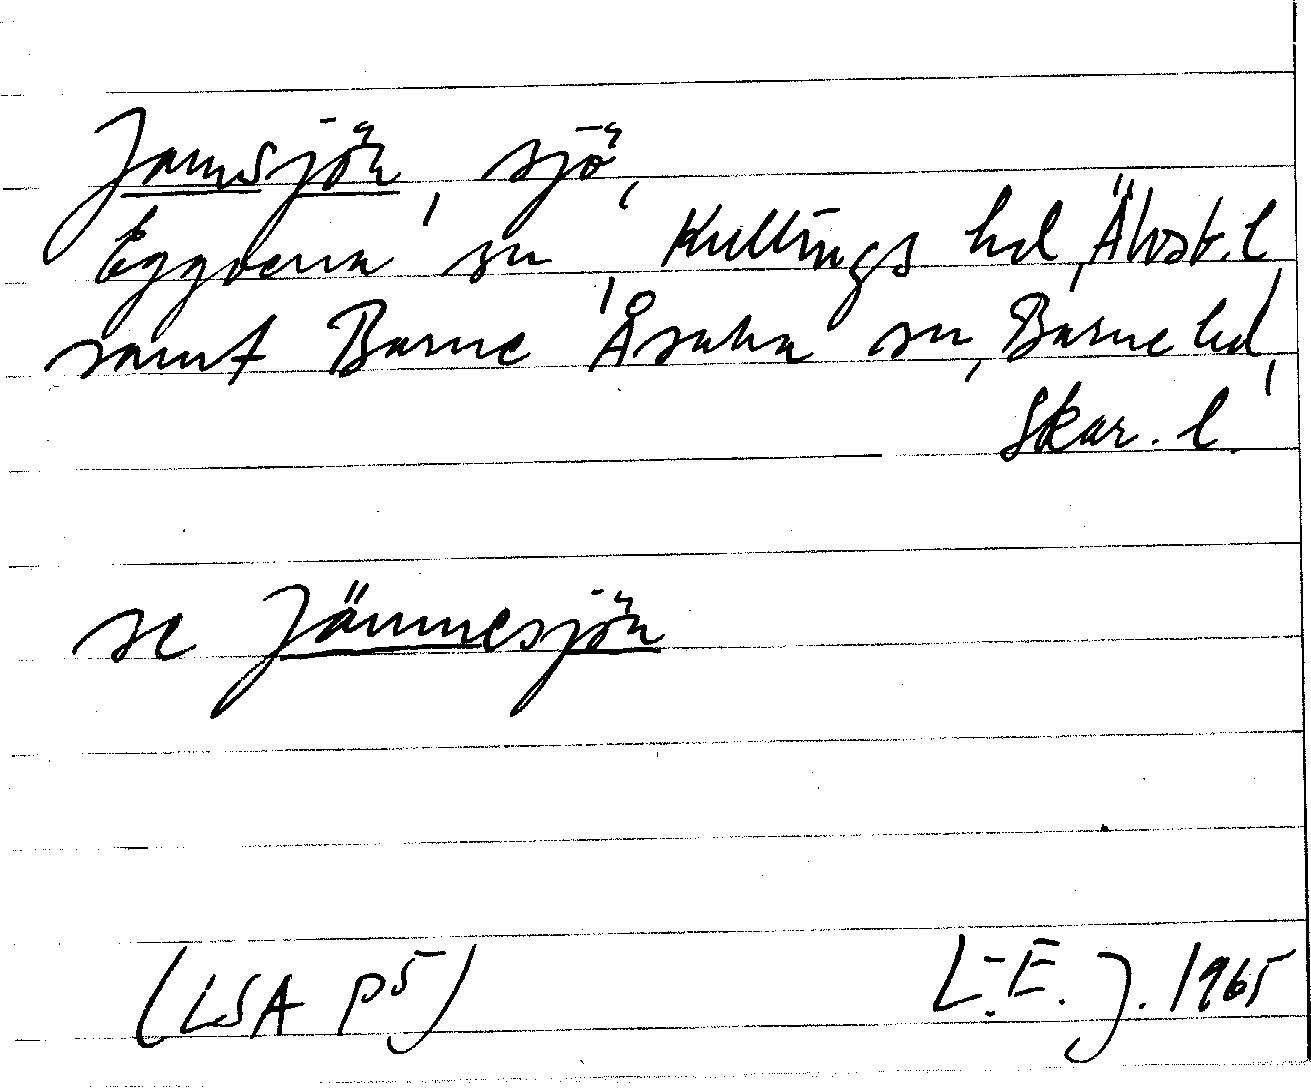 Jamsjön, sjö,
Eggvena sn, Kullings hd, Älvsb. l,
samt Barne Åsaka sn, Barne hd,
Skar. l.
se Jämmesjön
(LSA P5) L.-E. J. 1965